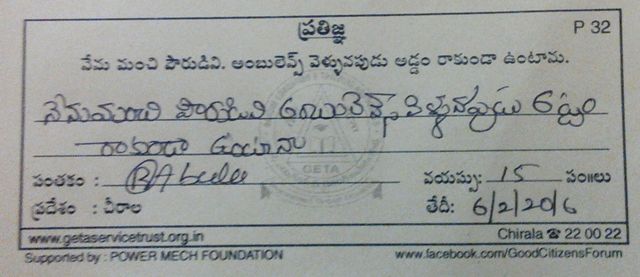 ప్రతిజ్ఞ P 32
నేను మంచి పౌరుడిని. అంబులెన్స్ వెళ్ళునపుడు అడ్డం రాకుండా ఉంటాను.
నేనుమంచి పౌరుడిని అంబులెన్స్ వెళ్ళునప్పుడు అడ్డం
రాకుండా ఉంటాను
GETA
సంతకం : వయస్సు: 15 సం॥లు
ప్రదేశం : చీరాల తేదీ: 6/2/2016
www.getaservicetrust.org.in Chirala ☎ 22 00 22
Supported by : POWER MECH FOUNDATION www.facebook.com/GoodCitizensForum